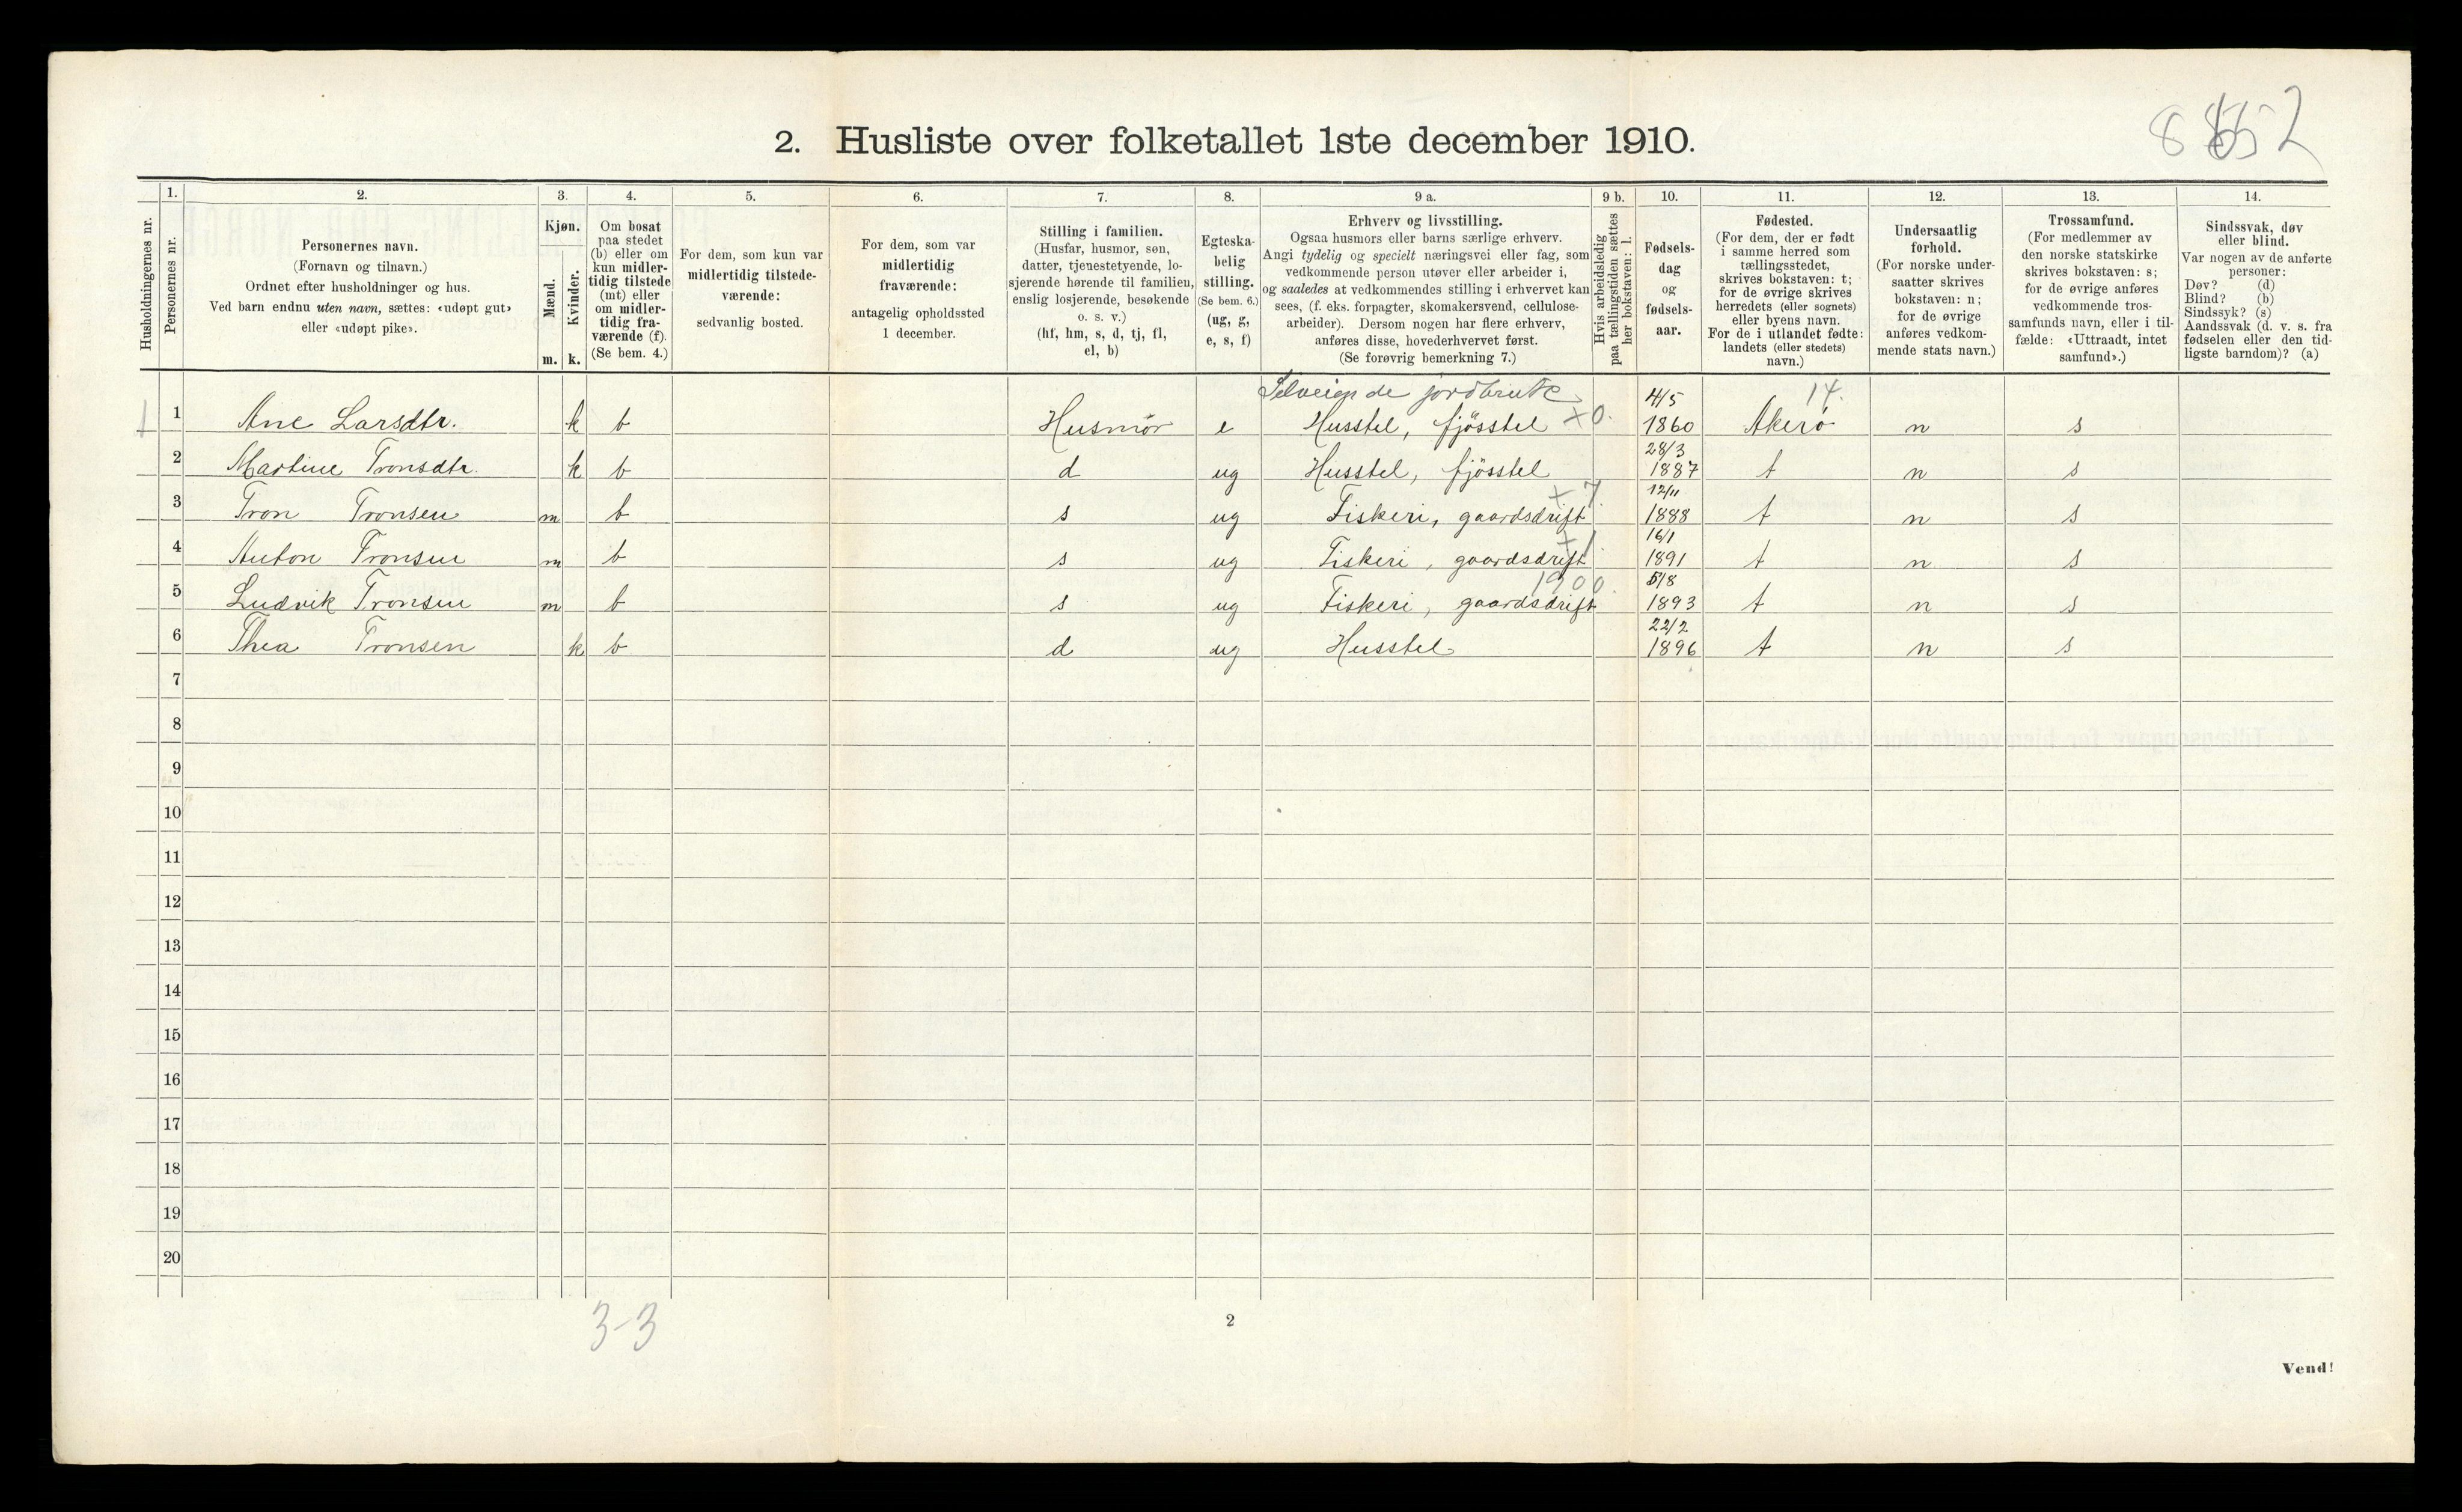 8 2
2. Husliste over folketallet 1ste december 1910.
Husholdningernes nr.
1. Personernes nr.
2. Personernes navn.
(Fornavn og tilnavn.)
Ordnet efter husholdninger og hus.
Ved barn endnu uten navn, sættes: «udøpt gut»
eller «udøpt pike».
3. Kjøn.
Mænd. m.
Kvinder. k.
4. Om bosat
paa stedet
(b) eller om
kun midler-
tidig tilstede
(mt) eller
om midler-
tidig fra-
værende (f).
(Se bem. 4.)
5. For dem, som kun var
midlertidig tilstede-
værende:
sedvanlig bosted.
6. For dem, som var
midlertidig
fraværende:
antagelig opholdssted
1 december.
7. Stilling i familien.
(Husfar, husmor, søn,
datter, tjenestetyende, lo-
sjerende hørende til familien,
enslig losjerende, besøkende
o. s. v.)
(hf, hm, s, d, tj, fl,
el, b)
8. Egteska-
belig
stilling.
(Se bem. 6.)
(ug, g,
e, s, f)
9 a. Erhverv og livsstilling.
Ogsaa husmors eller barns særlige erhverv.
Angi tydelig og specielt næringsvei eller fag, som
vedkommende person utøver eller arbeider i,
og saaledes at vedkommendes stilling i erhvervet kan
sees, (f. eks. forpagter, skomakersvend, cellulose-
arbeider). Dersom nogen har flere erhverv,
anføres disse, hovederhvervet først.
(Se forøvrig bemerkning 7.)
9 b. Hvis arbeidsledig
paa tællingstiden sættes
her bokstaven: l.
10. Fødsels-
dag
og
fødsels-
aar.
11. Fødested.
(For dem, der er født
i samme herred som
tællingsstedet,
skrives bokstaven: t;
for de øvrige skrives
herredets (eller sognets)
eller byens navn.
For de i utlandet fødte:
landets (eller stedets)
navn.)
12. Undersaatlig
forhold.
(For norske under-
saatter skrives
bokstaven: n;
for de øvrige
anføres vedkom-
mende stats navn.)
13. Trossamfund.
(For medlemmer av
den norske statskirke
skrives bokstaven: s;
for de øvrige anføres
vedkommende tros-
samfunds navn, eller i til-
fælde: «Uttraadt, intet
samfund».)
14. Sindssvak, døv
eller blind.
Var nogen av de anførte
personer:
Døv? (d)
Blind? (b)
Sindssyk? (s)
Aandssvak (d. v. s. fra
fødselen eller den tid-
ligste barndom)? (a)
Selveiende jordbruk 4/5 14.
1 1 Ane Larsdtr. k b Husmor e Husstel, fjösstel x0. 1860 Akerö n s
28/3
2 Martine Tronsdtr. k b d ug Husstel, fjösstel 1887 t n s
x 7 12/11
3 Tron Tronsen m b s ug Fiskeri, gaardsdrift 1888 t n s
x 1. 16/1
4 Anton Tronsen m b s ug Fiskeri, gaardsdrift 1891 t n s
1900. 5/8
5 Ludvik Tronsen m b s ug Fiskeri, gaardsdrift 1893 t n s
22/2
6 Thea Tronsen k b d ug Husstel 1896 t n s
7
8
9
10
11
12
13
14
15
16
17
18
19
20
3-3
2
Vend!